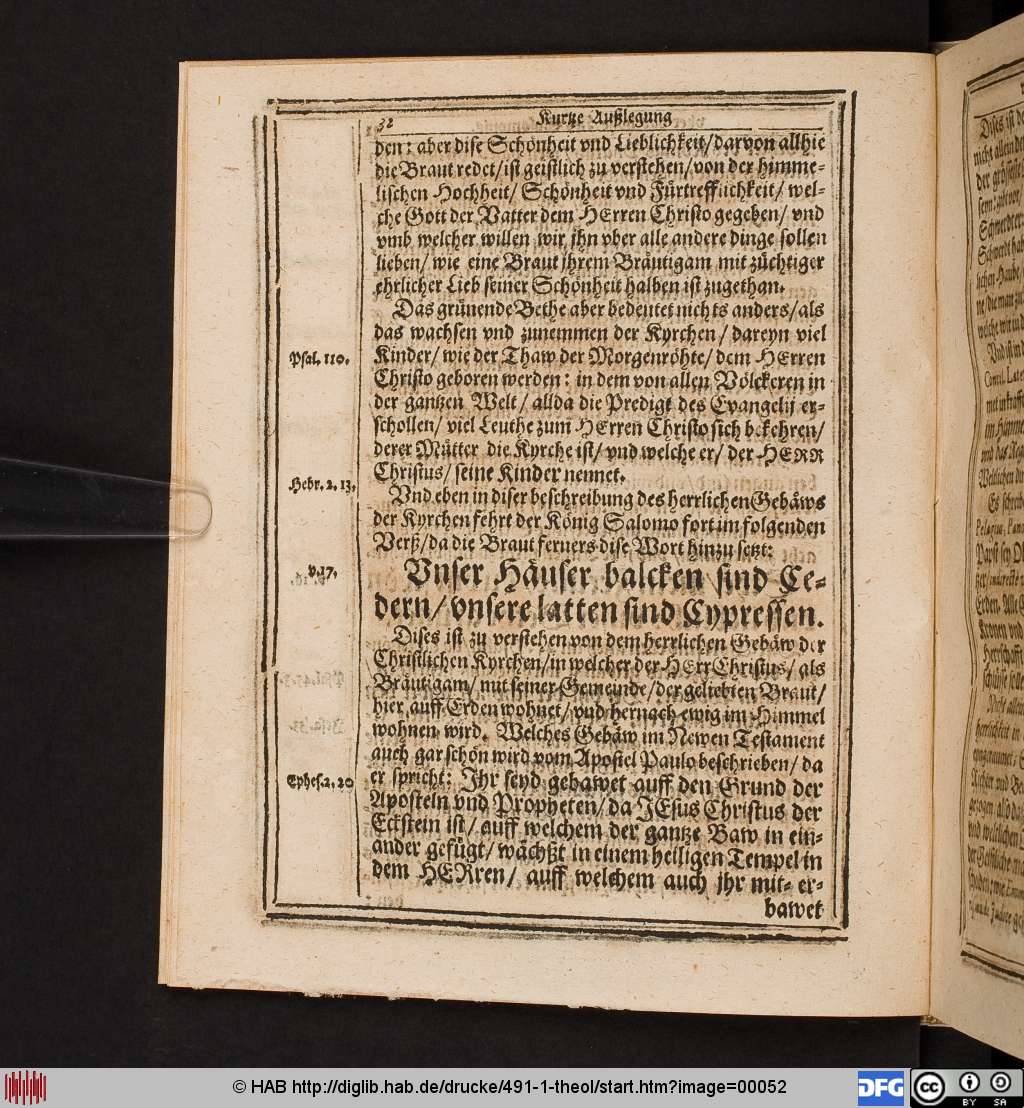 32 Kurtze Außlegung
den: aber dise Schönheit vnd Lieblichkeit/ darvon allhie
die Braut redet/ ist geistlich zu verstehen/ von der himme-
lischen Hochheit/ Schönheit vnd Fürtrefflichkeit/ wel-
che Gott der Vatter dem HErren Christo gegeben/ vnd
vmb welcher willen wir jhn vber alle andere dinge sollen
lieben/ wie eine Braut jhrem Bräutigam mit züchtiger
ehrlicher Lieb seiner Schönheit halben ist zugethan.
Das grünende Bethe aber bedeutet nichts anders/ als
das wachsen vnd zunemmen der Kyrchen/ dareyn viel
Psal. 110.
Kinder/ wie der Thaw der Morgenröhte/ dem HErren
Christo geboren werden: in dem von allen Völckeren in
der gantzen Welt/ allda die Predigt des Evangelij er-
schollen/ viel Leuthe zum HErren Christo sich bekehren/
derer Mütter die Kyrche ist/ vnd welche er/ der HERR
Christus/ seine Kinder nennet.
Hebr. 2. 13.
Vnd eben in diser beschreibung des herrlichen Gebäws
der Kyrchen fehrt der König Salomo fort im folgenden
Verß/ da die Braut ferners dise Wort hinzu setzt:
v. 17.
Vnser Häuser balcken sind Ce-
dern/ vnsere latten sind Cypressen.
Dises ist zu verstehen von dem herrlichen Gebäw der
Christlichen Kyrchen/ in welcher der HErr Christus/ als
Bräutigam/ mit seiner Gemeinde/ der geliebten Braut/
hier auff Erden wohnet/ vnd hernach ewig im Himmel
wohnen wird. Welches Gebäw im Newen Testament
auch gar schön wird vom Apostel Paulo beschrieben/ da
Ephes. 2. 20
er spricht: Jhr seyd gebawet auff den Grund der
Aposteln vnd Propheten/ da JEsus Christus der
Eckstein ist/ auff welchem der gantze Baw in ein-
ander gefügt/ wächßt in einem heiligen Tempel in
dem HERren/ auff welchem auch jhr mit- er-
bawet
© HAB http://diglib.hab.de/drucke/491-1-theol/start.htm?image=00052
DFG
cc BY SA